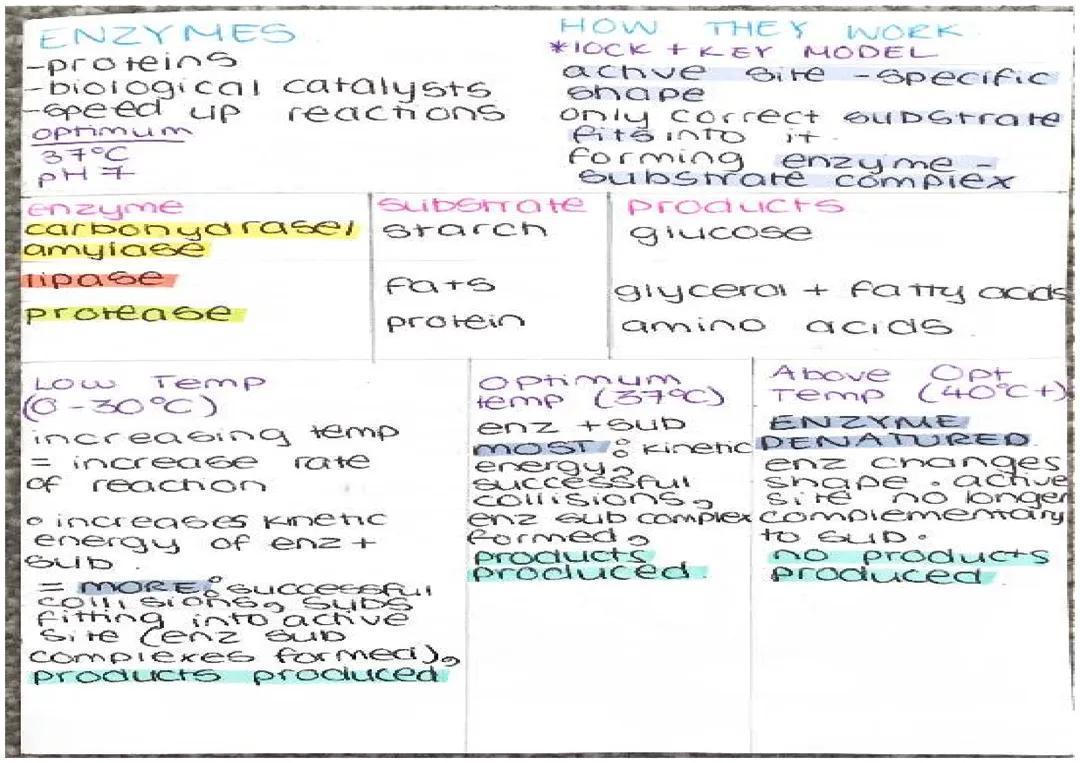 ENZYMES
-proteins
-biological catalysts
-speed up reactions
optimum
37°C
pH 7
HOW THEY WORK
*lOCK + KEY MODEL
active site - specific
shape
only correct substrate
fits into it.
forming enzyme -
substrate complex
enzyme
carbohydrase/
amylase
lipase
protease
substrate
starch
fats
protein
products
glucose
glycerol + fatty acids
amino acids.
Low Temp
(0-30°C)
increasing temp
= increase rate
of reaction
• increases kinetic
energy of enz +
sub.
= MORE: successful
collisions, subs
fitting into active
site (enz sub
complexes formed),
products produced
Optimum
temp (37°C)
enz + sub
MOST: kinetic
energy,
successful
collisions,
enz sub complex
formed,
products
produced.
Above Opt
Temp (40°C+)
ENZYME
DENATURED.
enz changes
shape. active
site no longer
complementary
to sub.
no products
produced.